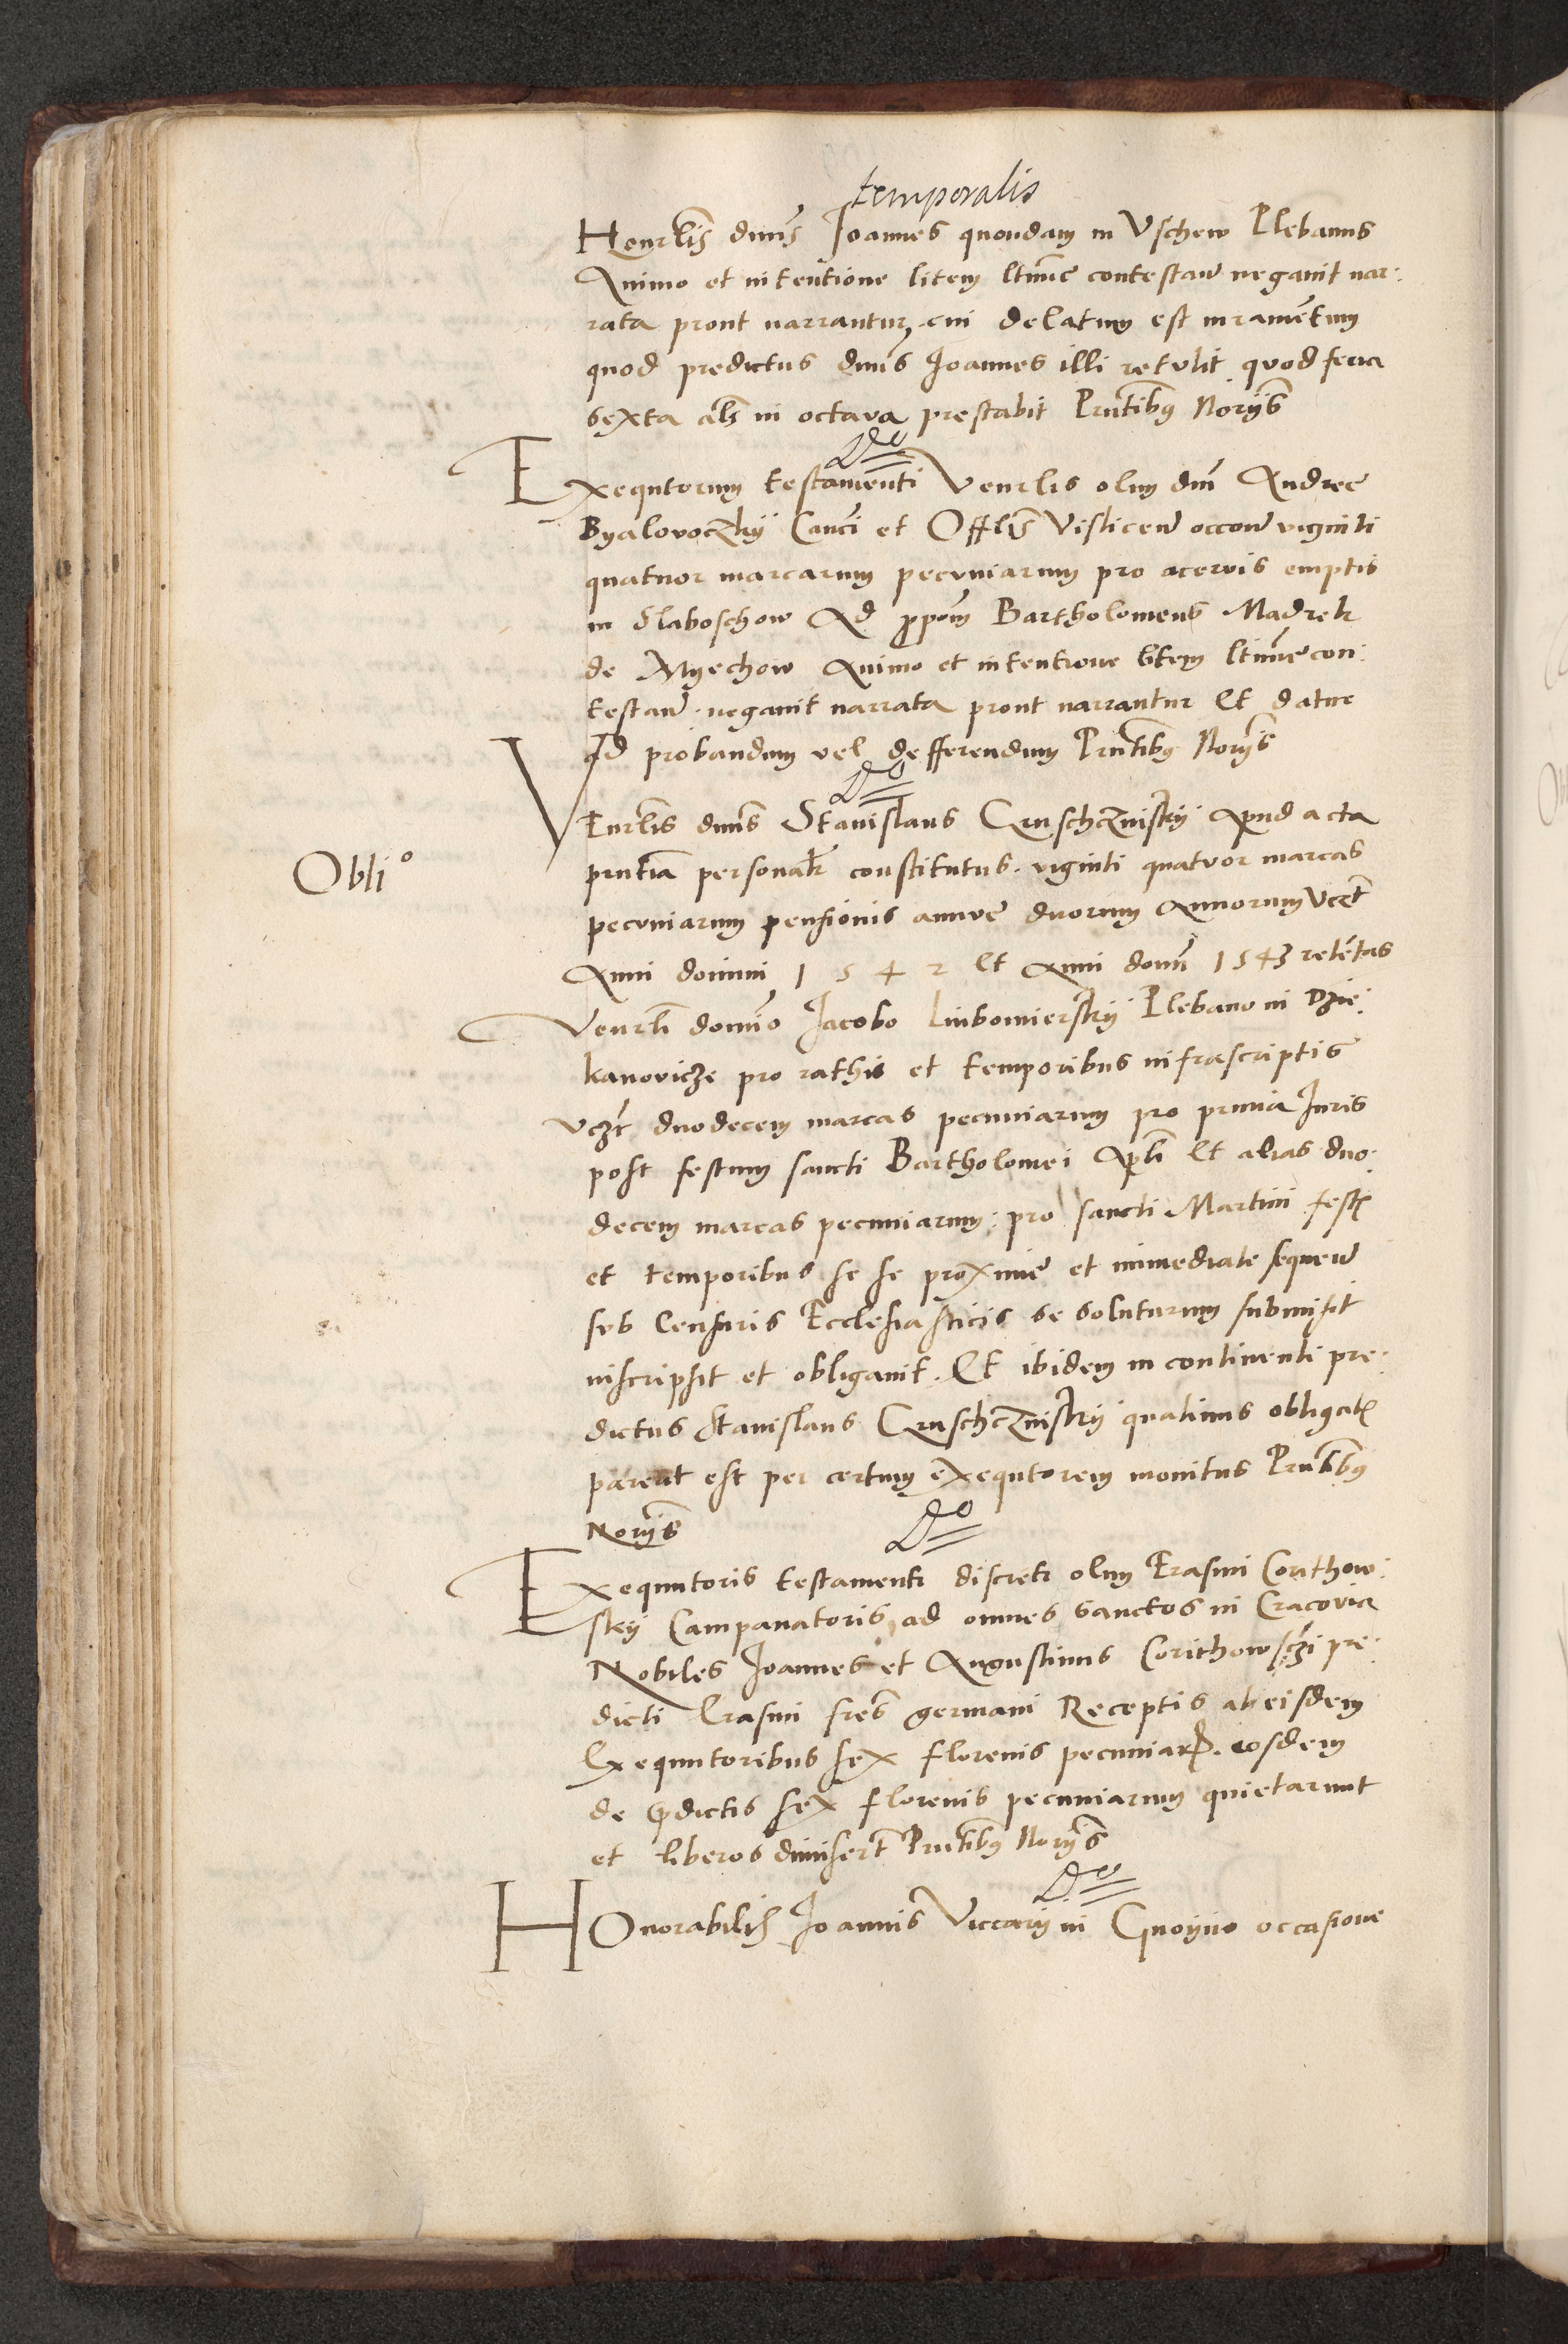 temporalis
Honrlis dnus Joannes quondam in Vschew Plebanus
Animo et intentione litem ltime contestan negauit nar:
rata prout narrantur, cui delatum est iuramentum
quod predictus dnus Joannes illi retulit quod feria
sexta als in octaua prestabit Pntibus Norijs
Do
Exequtorum testamenti Venrlis olim dni Andree
Byalovoczkij Canci et Offlis Visliceñ occone viginti
quatuor marcarum pecuniarum pro acervis emptis
in Slaboschow Ad ppom Bartholomeus Madrek
de Myechow Animo et intentione litem ltime con:
testan negauit narrata prout narrantur Et datur
ad probandum vel defferendum Pntibus Norijs
Do
Obli°
VEnrlis dnus Stanislaus Cruschczniskij Apud acta
pntia personalr constitutus. viginti quatuor marcas
pecuniarum pensionis annue duorum Annorum Vczt
Anni domini 1 5 4 2 Et Anni domi 1543 retentas
Venrli domino Jacobo Lubomierskij Plebano in Dzie:
kanovicze pro rathis et temporibus infrascriptis
Vczt duodecem marcas pecuniarum pro primia Juris
post festum sancti Bartholomei Apli Et alias duo:
decem marcas pecuniarum: pro sancti Martini festis
et temporibus se se proxime et immediate sequen
sub Censuris Ecclesiasticis se soluturum submisit
inscripsit et obligauit. Et ibidem in continenti pre:
dictus Stanislaus Cruschczniskij quatinus obligatis
pareat est per certum exequtorem monitus Pntibus
Norijs
Do
Exequutoris testamenti discreti olim Erasmi Corithow:
skij Campanatoris, ad omnes sanctos in Cracovia
Nobiles Joannes et Augustinus Corithowsczi pre:
dicti Erasmi fres germani Receptis ab eisdem
Exequutoribus sex florenis pecuniar. eosdem
de pdictis sex florenis pecuniarum quietarunt
et liberos dimisert Pntibus Norijs
Do
HOnorabilis Joannis Viccarij in Gnoyno occasione